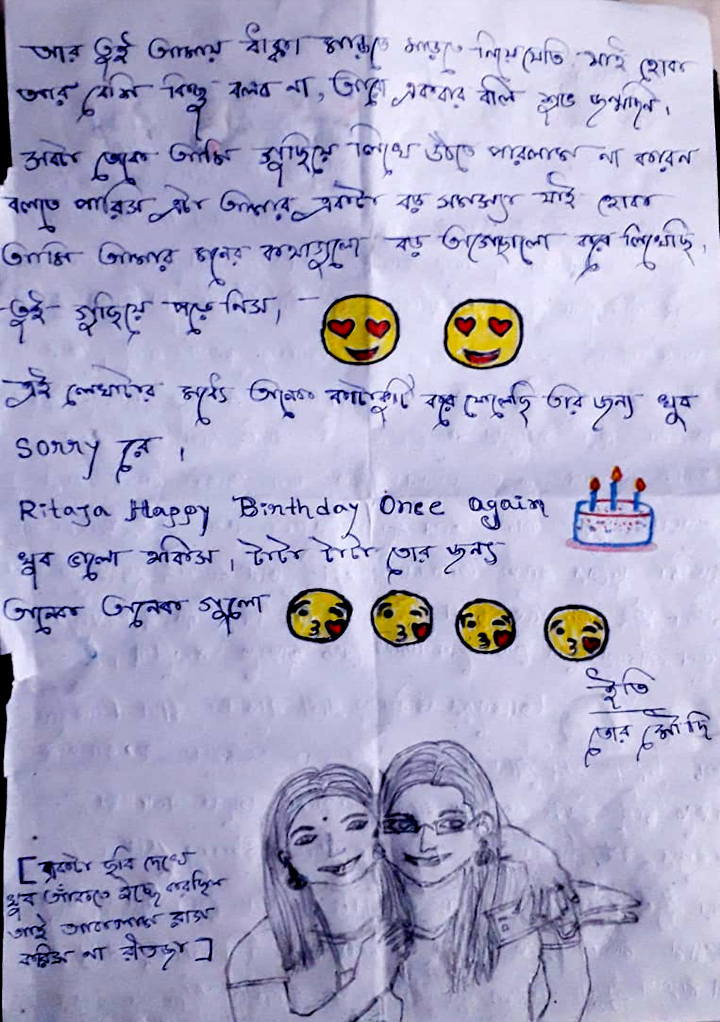 আর তুই আমায় ধাক্কা মারতে মারতে নিয়ে যেতি যাই হোক
আর বেশি কিছু বলব না, আরো একবার বলি শুভ জন্মদিন।
আমি গুছিয়ে লিখে উঠতে পারলাম না কারন
বলতে পারিস এটা আমার একটা বড় সমস্যা যাই হোক
আমি আমার মনের কথাগুলো বড় অগোছালো করে লিখেছি,
তুই গুছিয়ে পড়ে নিস,
এই লেখাটার মধ্যে অনেক কাটাকুটি করে ফেলেছি তার জন্য খুব
Sorry রে।
Ritaja Happy Birthday Once again
খুব ভালো থাকিস, টাটা টাটা তোর জন্য
অনেক অনেক গুলো
ইতি
তোর মৌদি
[ একটা ছবি দেখে
খুব আঁকতে ইচ্ছে করছিল
তাই আঁকলাম রাগ
করিস না ঋতজা ]